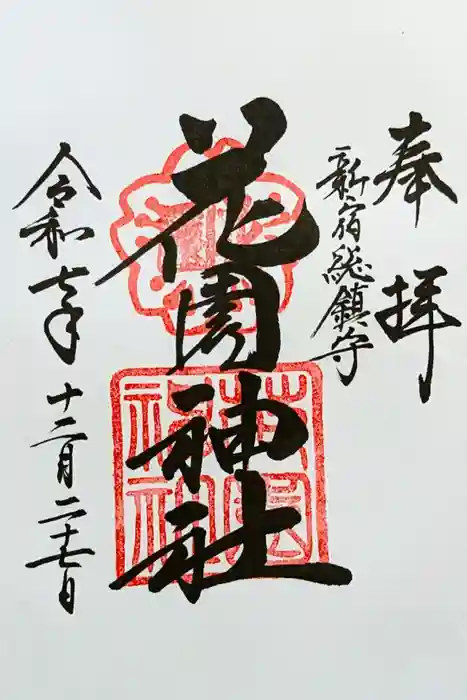 奉拝
新宿総鎮守
花園神社
令和七年
十二月二十七日
花園神社